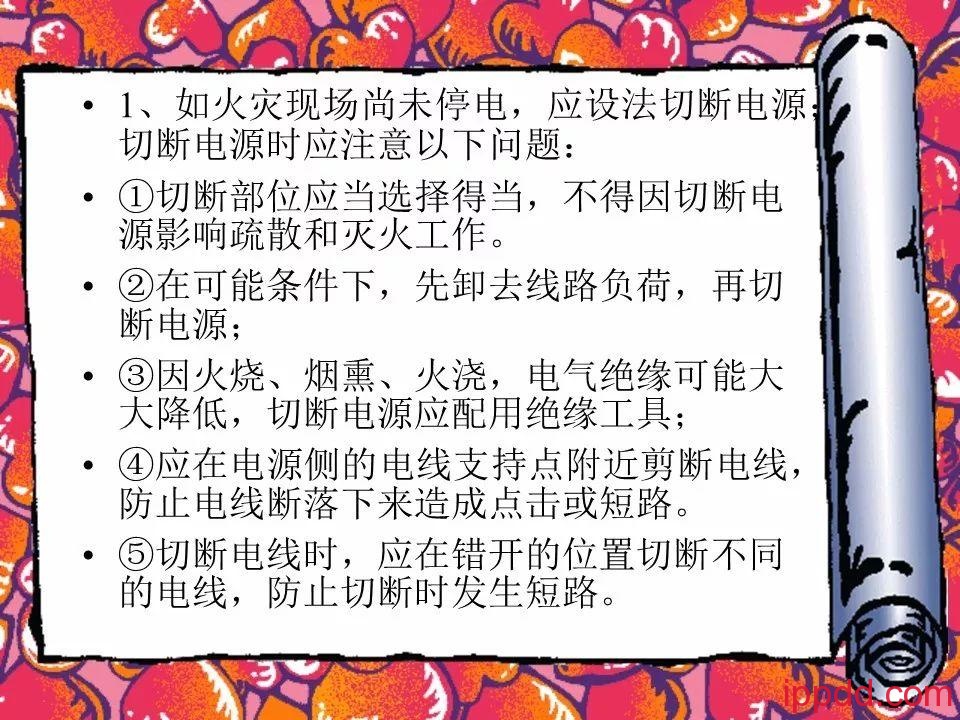 • 1、如火灾现场尚未停电，应设法切断电源；
切断电源时应注意以下问题：
• ①切断部位应当选择得当，不得因切断电
源影响疏散和灭火工作。
• ②在可能条件下，先卸去线路负荷，再切
断电源；
• ③因火烧、烟熏、火浇，电气绝缘可能大
大降低，切断电源应配用绝缘工具；
• ④应在电源侧的电线支持点附近剪断电线，
防止电线断落下来造成点击或短路。
• ⑤切断电线时，应在错开的位置切断不同
的电线，防止切断时发生短路。
ippdd.com